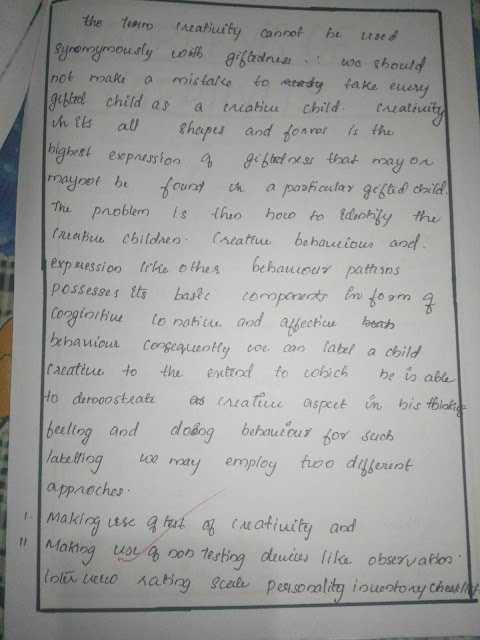 The term creativity cannot be used
synomymously with giftedness ∴ we should
not make a mistake to take every
gifted child as a creative child. Creativity
in its all shapes and forms is the
highest expression of giftedness that may or
maynot be found in a particular gifted child.
The problem is then how to identify the
Creative children. Creative behaviour and.
expression like other behaviour patterns
possesses its basic components in form of
Conginitive conative and affective
behaviour Consequently we can label a child
Creative to the extend to which he is able
to demonstrate creative aspect in his thinking
feeling and doing behaviour for such
labelling we may employ two different
approches.
I. Making use of test of creativity and
II Making use of non testing devices like observation.
interview rating scale personality inventory checklist